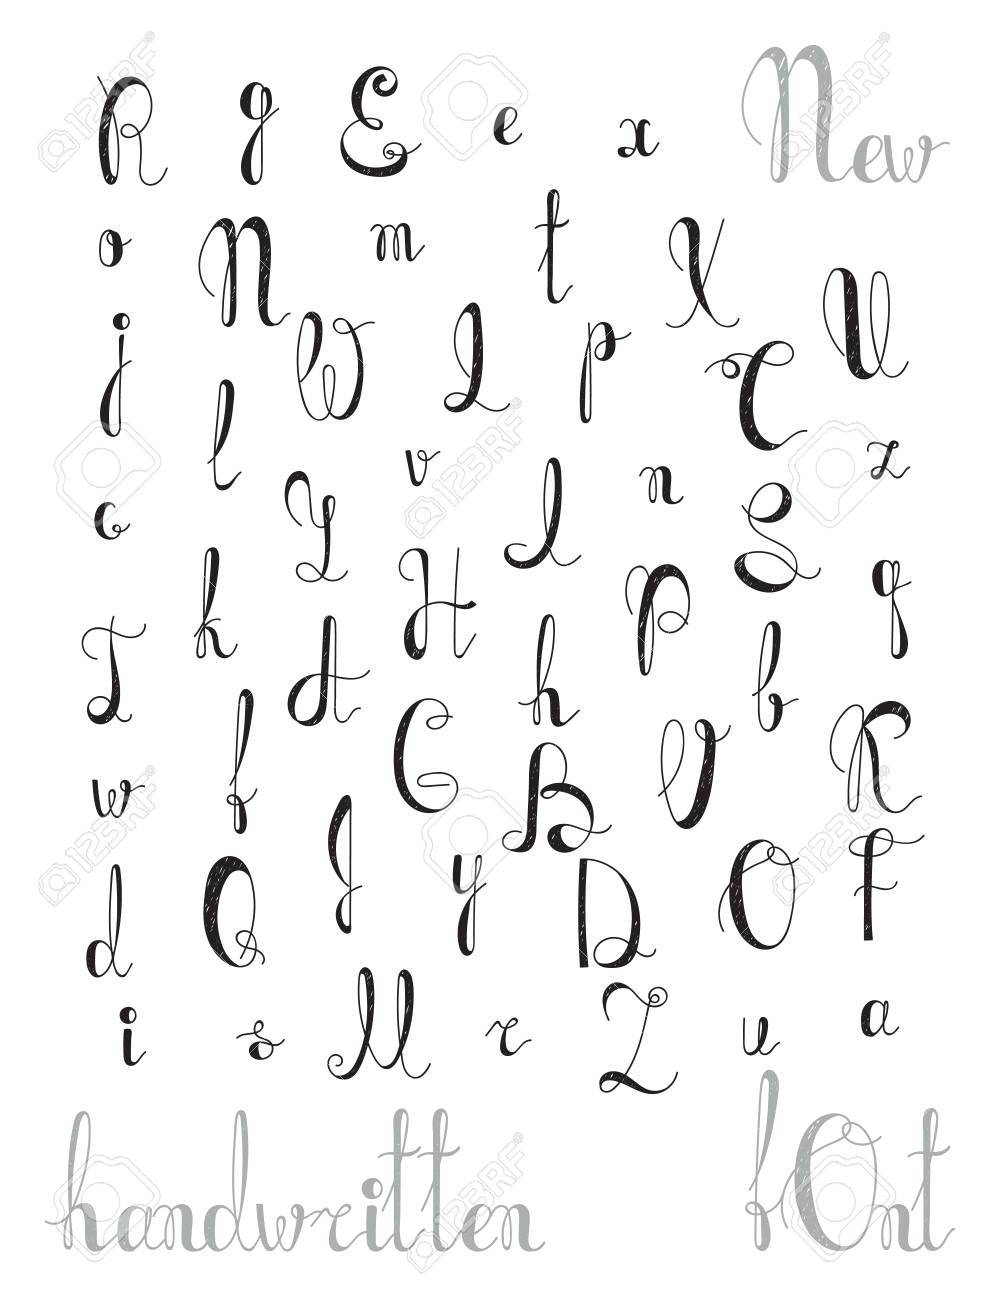 R g E e x New
o N m t X
j W Q p C U
l v n z
c Y I S
k H P q
T A h b
w f G B V K
d Q J y D O F
i s M r Z u a
handwritten fOnt